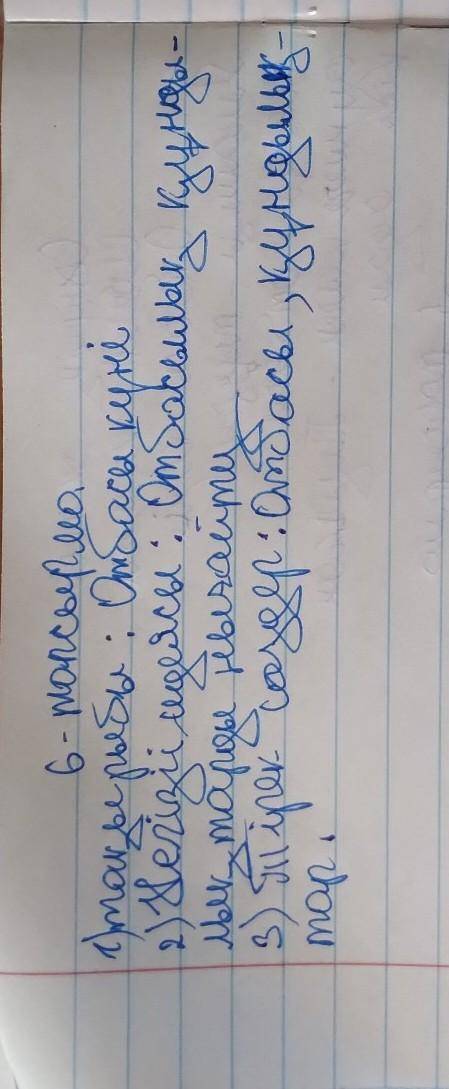 6-тапсырма
1) тақырыбы: Отбасы күні
2) Негізгі идеясы: Отбасылық құнды-
лықтарды нығайту
3) Тірек сөздер: Отбасы, құндылық-
тар.